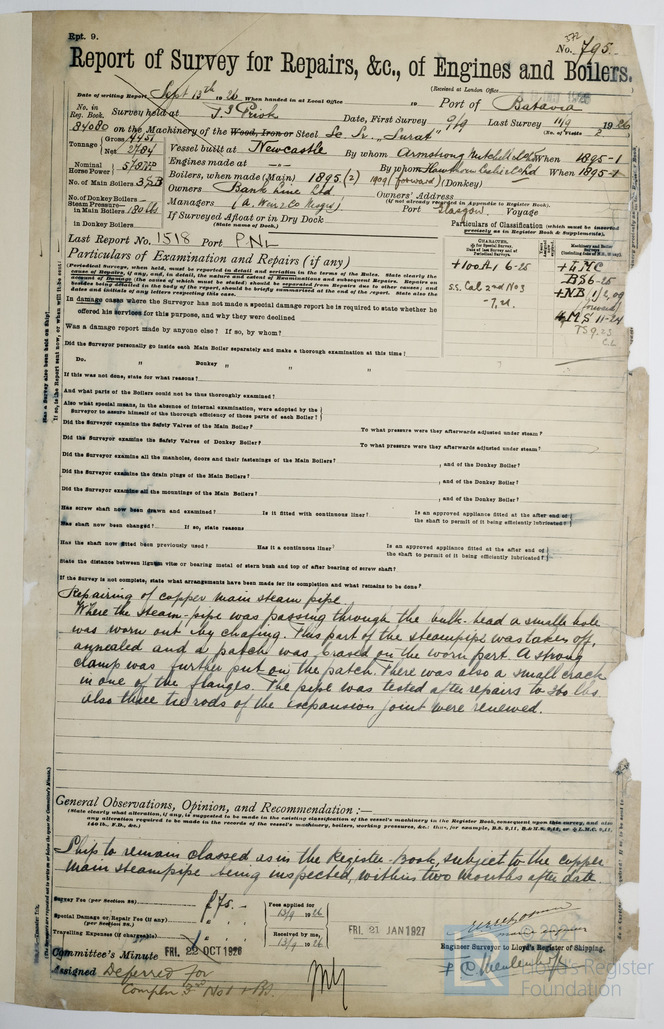 Rpt. 9.
No. 795.
Report of Survey for Repairs, &c., of Engines and Boilers.
(Received at London Office
Date of writing Report Sept 13th 1926 When handed in at Local Office 19 Port of Batavia
No. in Reg. Book. 84080 Survey held at T. Priok Date, First Survey 9/9 Last Survey 11/9 1926
(No. of Visits 2
on the Machinery of the Wood, Iron or Steel Sc. Sr. "Surat"
Tonnage Gross 4451 Net 2784 Vessel built at Newcastle By whom Armstrong Mitchell When 1895-1
Engines made at By whom When 1895-1
Nominal Horse Power
Boilers, when made (Main) 1895 (2) 1909 (forward) (Donkey)
No. of Main Boilers 3SB
Owners Bank Line Ltd Owners' Address
(if not already recorded in Appendix to Register Book).
No. of Donkey Boilers
Managers (A. Weir & Co Mngrs) Port Glasgow. Voyage
Steam Pressure in Main Boilers 180 lbs
in Donkey Boilers
If Surveyed Afloat or in Dry Dock
(State name of Dock.)
Particulars of Classification (which must be inserted precisely as in Register Book & Supplements).
Last Report No. 1518 Port PNL
Particulars of Examination and Repairs (if any)
+100A1 6-25
SS. Cal 2nd No3
+LMC
BS 6-25
+NB, 1/2,09
forward
MS 11-24
TS 9.23
CL
In damage cases where the Surveyor has not made a special damage report he is required to state whether he
offered his services for this purpose, and why they were declined
Was a damage report made by anyone else? If so, by whom?
Did the Surveyor personally go inside each Main Boiler separately and make a thorough examination at this time?
Do. " Donkey " " "
If this was not done, state for what reasons?
And what parts of the Boilers could not be thoroughly examined?
Also what special means, in the absence of internal examination, were adopted by the
Surveyor to assure himself of the thorough efficiency of those parts of each Boiler?
Did the Surveyor examine the Safety Valves of the Main Boiler? To what pressure were they afterwards adjusted under steam?
Did the Surveyor examine the Safety Valves of Donkey Boiler? To what pressure were they afterwards adjusted under steam?
Did the Surveyor examine all the manholes, doors and their fastenings of the Main Boilers? , and of the Donkey Boiler?
Did the Surveyor examine the drain plugs of the Main Boilers? , and of the Donkey Boiler?
Did the Surveyor examine all the mountings of the Main Boilers? , and of the Donkey Boiler?
Has screw shaft now been drawn and examined? Is it fitted with continuous liner? Is an approved appliance fitted at the after end of
the shaft to permit of it being efficiently lubricated?
Has shaft now been changed? If so, state reasons
Has the shaft now fitted been previously used? Has it a continuous liner? Is an approved appliance fitted at after end of
the shaft to permit of it being efficiently lubricated?
State the distance between lignum vitæ or bearing metal of stern bush and top of after bearing of screw shaft?
If the Survey is not complete, state what arrangements have been made for its completion and what remains to be done?
Repairing of copper main steam pipe.
Where the steam-pipe was passing through the bulk-head a small hole
was worn out by chafing. This part of the steampipe was taken off,
annealed and a patch was brased on the worn part. A strong
clamp was further put on the patch. There was also a small crack
in one of the flanges. The pipe was tested after repairs to 360 lbs.
Also three tie rods of the expansion joint were renewed.
General Observations, Opinion, and Recommendation :—
Ship to remain classed as in the Register-Book, subject to the copper
main steampipe being inspected, within two months after date.
Survey Fee (per Section 28) £75.-
Fees applied for 13/9 1926
Special Damage or Repair Fee (if any) (per Section 28.)
Travelling Expenses (if chargeable)
Received by me, 13/9 1926
FRI. 21 JAN 1927
Engineer Surveyor to Lloyd's Register of Shipping.
Committee's Minute FRI. 22 OCT 1926
Assigned Deferred for
LR
Lloyd's Register
Foundation